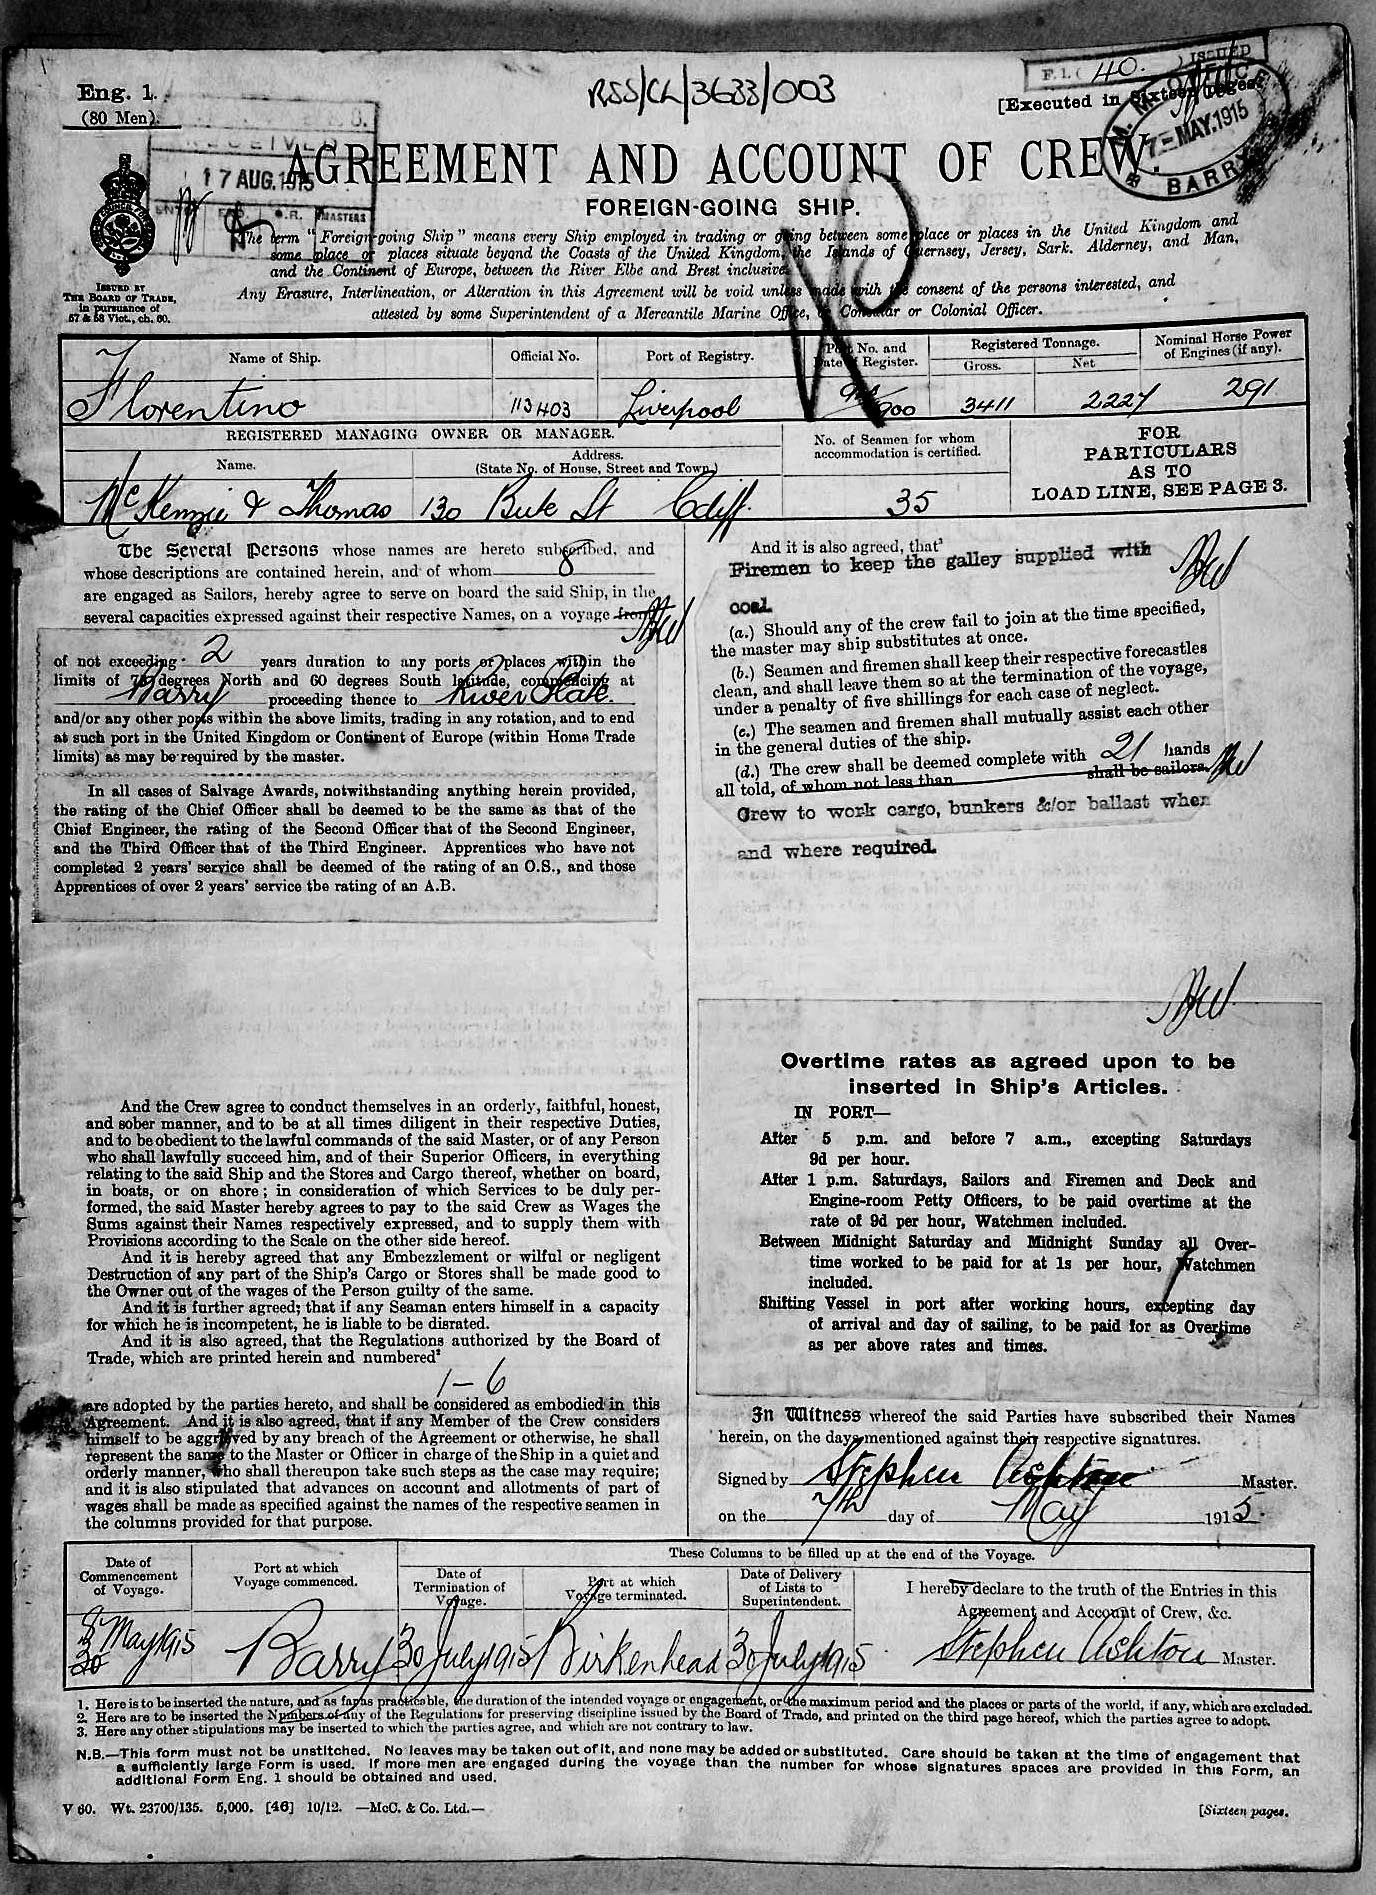 Eng. 1.
(80 Men).
RSS/CL/3633/003
F. 1. ( 40. ) ISSUED
[Executed in Sixteen Pages.
M. M. OFFICE
7 - MAY. 1915
BARRY
RECEIVED
17 AUG. 1915
MASTERS
AGREEMENT AND ACCOUNT OF CREW.
FOREIGN-GOING SHIP.
ISSUED BY
THE BOARD OF TRADE,
in pursuance of
57 & 58 Vict., ch. 60.
The term "Foreign-going Ship" means every Ship employed in trading or going between some place or places in the United Kingdom and
some place or places situate beyond the Coasts of the United Kingdom, the Islands of Guernsey, Jersey, Sark, Alderney, and Man,
and the Continent of Europe, between the River Elbe and Brest inclusive.
Any Erasure, Interlineation, or Alteration in this Agreement will be void unless made with the consent of the persons interested, and
attested by some Superintendent of a Mercantile Marine Office, or Consular or Colonial Officer.
Name of Ship. Official No. Port of Registry. Port No. and Date of Register. Registered Tonnage. Gross. Net Nominal Horse Power of Engines (if any).
Florentino 113403 Liverpool 900 3411 2227 291
REGISTERED MANAGING OWNER OR MANAGER.
Name. Address. (State No. of House, Street and Town.)
No. of Seamen for whom accommodation is certified.
McKenzie & Thomas 130 Bute St Cdiff. 35
FOR
PARTICULARS
AS TO
LOAD LINE, SEE PAGE 3.
The Several Persons whose names are hereto subscribed, and
whose descriptions are contained herein, and of whom 8
are engaged as Sailors, hereby agree to serve on board the said Ship, in the
several capacities expressed against their respective Names, on a voyage from
of not exceeding 2 years duration to any ports or places within the
limits of 75 degrees North and 60 degrees South latitude, commencing at
Barry proceeding thence to River Plate.
and/or any other ports within the above limits, trading in any rotation, and to end
at such port in the United Kingdom or Continent of Europe (within Home Trade
limits) as may be required by the master.
In all cases of Salvage Awards, notwithstanding anything herein provided,
the rating of the Chief Officer shall be deemed to be the same as that of the
Chief Engineer, the rating of the Second Officer that of the Second Engineer,
and the Third Officer that of the Third Engineer. Apprentices who have not
completed 2 years' service shall be deemed of the rating of an O.S., and those
Apprentices of over 2 years' service the rating of an A.B.
And the Crew agree to conduct themselves in an orderly, faithful, honest,
and sober manner, and to be at all times diligent in their respective Duties,
and to be obedient to the lawful commands of the said Master, or of any Person
who shall lawfully succeed him, and of their Superior Officers, in everything
relating to the said Ship and the Stores and Cargo thereof, whether on board,
in boats, or on shore; in consideration of which Services to be duly per-
formed, the said Master hereby agrees to pay to the said Crew as Wages the
Sums against their Names respectively expressed, and to supply them with
Provisions according to the Scale on the other side hereof.
And it is hereby agreed that any Embezzlement or wilful or negligent
Destruction of any part of the Ship's Cargo or Stores shall be made good to
the Owner out of the wages of the Person guilty of the same.
And it is further agreed; that if any Seaman enters himself in a capacity
for which he is incompetent, he is liable to be disrated.
And it is also agreed, that the Regulations authorized by the Board of
Trade, which are printed herein and numbered²
1 - 6
are adopted by the parties hereto, and shall be considered as embodied in this
Agreement. And it is also agreed, that if any Member of the Crew considers
himself to be aggrieved by any breach of the Agreement or otherwise, he shall
represent the same to the Master or Officer in charge of the Ship in a quiet and
orderly manner, who shall thereupon take such steps as the case may require;
and it is also stipulated that advances on account and allotments of part of
wages shall be made as specified against the names of the respective seamen in
the columns provided for that purpose.
And it is also agreed, that³
Firemen to keep the galley supplied with
coal.
(a.) Should any of the crew fail to join at the time specified,
the master may ship substitutes at once.
(b.) Seamen and firemen shall keep their respective forecastles
clean, and shall leave them so at the termination of the voyage,
under a penalty of five shillings for each case of neglect.
(c.) The seamen and firemen shall mutually assist each other
in the general duties of the ship.
(d.) The crew shall be deemed complete with 21 hands
all told, of whom not less than shall be sailors.
Crew to work cargo, bunkers &/or ballast when
and where required.
Overtime rates as agreed upon to be
inserted in Ship's Articles.
IN PORT—
After 5 p.m. and before 7 a.m., excepting Saturdays
9d per hour.
After 1 p.m. Saturdays, Sailors and Firemen and Deck and
Engine-room Petty Officers, to be paid overtime at the
rate of 9d per hour, Watchmen included.
Between Midnight Saturday and Midnight Sunday all Over-
time worked to be paid for at 1s per hour, Watchmen
included.
Shifting Vessel in port after working hours, excepting day
of arrival and day of sailing, to be paid for as Overtime
as per above rates and times.
In Witness whereof the said Parties have subscribed their Names
herein, on the days mentioned against their respective signatures.
Signed by Stephen Ashton Master.
on the 7th day of May 1915.
These Columns to be filled up at the end of the Voyage.
Date of Commencement of Voyage. Port at which Voyage commenced. Date of Termination of Voyage. Port at which Voyage terminated. Date of Delivery of Lists to Superintendent.
I hereby declare to the truth of the Entries in this
Agreement and Account of Crew, &c.
8 May 1915 Barry 30 July 1915 Birkenhead 30 July 1915 Stephen Ashton Master.
30
1. Here is to be inserted the nature, and as far as practicable, the duration of the intended voyage or engagement, or the maximum period and the places or parts of the world, if any, which are excluded.
2. Here are to be inserted the Numbers of any of the Regulations for preserving discipline issued by the Board of Trade, and printed on the third page hereof, which the parties agree to adopt.
3. Here any other stipulations may be inserted to which the parties agree, and which are not contrary to law.
N.B.—This form must not be unstitched. No leaves may be taken out of it, and none may be added or substituted. Care should be taken at the time of engagement that
a sufficiently large Form is used. If more men are engaged during the voyage than the number for whose signatures spaces are provided in this Form, an
additional Form Eng. 1 should be obtained and used.
V 60. Wt. 23700/135. 5,000. [46] 10/12. —McC. & Co. Ltd.—
[Sixteen pages.